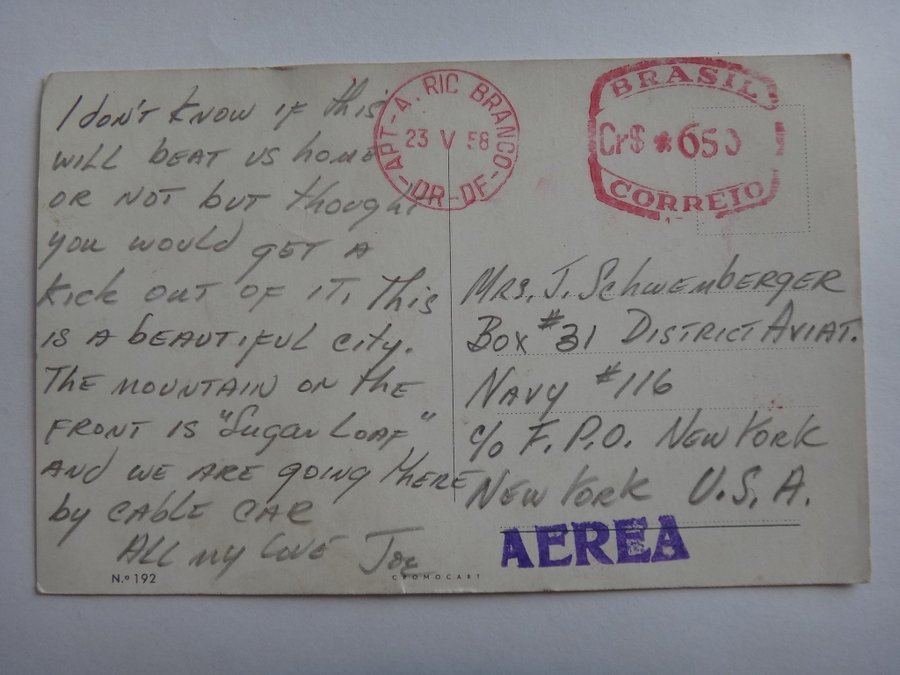 I don't know if this
will beat us home
or not but thought
you would get a
kick out of it. This
is a beautiful city.
The mountain on the
front is "Sugar Loaf"
and we are going there
by cable car
All my love Joe
N.o 192
CROMOCART
APT-A. RIC BRANCO
23 V 58
-DR-DF-
BRASIL
Cr$ *650
CORREIO
Mrs. J. Schwenberger
Box #31 District Aviat.
Navy #116
c/o F.P.O. New York
New York U.S.A.
AEREA